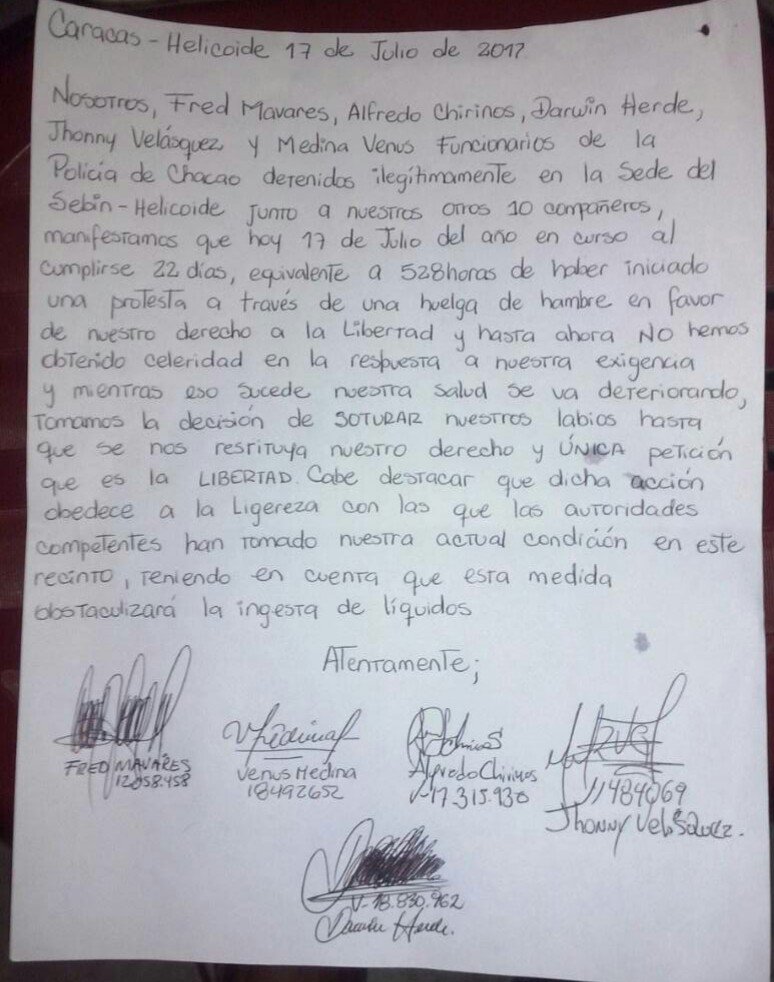 Caracas - Helicoide 17 de Julio de 2017
Nosotros, Fred Mavares, Alfredo Chirinos, Darwin Herde,
Jhonny Velásquez y Medina Venus Funcionarios de la
Policía de Chacao detenidos ilegítimamente en la Sede del
Sebin-Helicoide junto a nuestros otros 10 compañeros,
manifestamos que hoy 17 de Julio del año en curso al
cumplirse 22 días, equivalente a 528horas de haber iniciado
una protesta a través de una huelga de hambre en favor
de nuestro derecho a la Libertad y hasta ahora NO hemos
obtenido celeridad en la respuesta a nuestra exigencia
y mientras eso sucede nuestra salud se va deteriorando,
Tomamos la decisión de SOTURAR nuestros labios hasta
que se nos restituya nuestro derecho y ÚNICA petición
que es la LIBERTAD. Cabe destacar que dicha acción
obedece a la Ligereza con las que las autoridades
competentes han tomado nuestra actual condición en este
recinto, teniendo en cuenta que esta medida
obstaculizará la ingesta de líquidos
Atentamente;
FRED MAVARES
12.058.458
Venus Medina
18492652
Alfredo Chirinos
V-17.315.930
11484069
Jhonny Velásquez.
V-18.830.962
Darwin Herde.